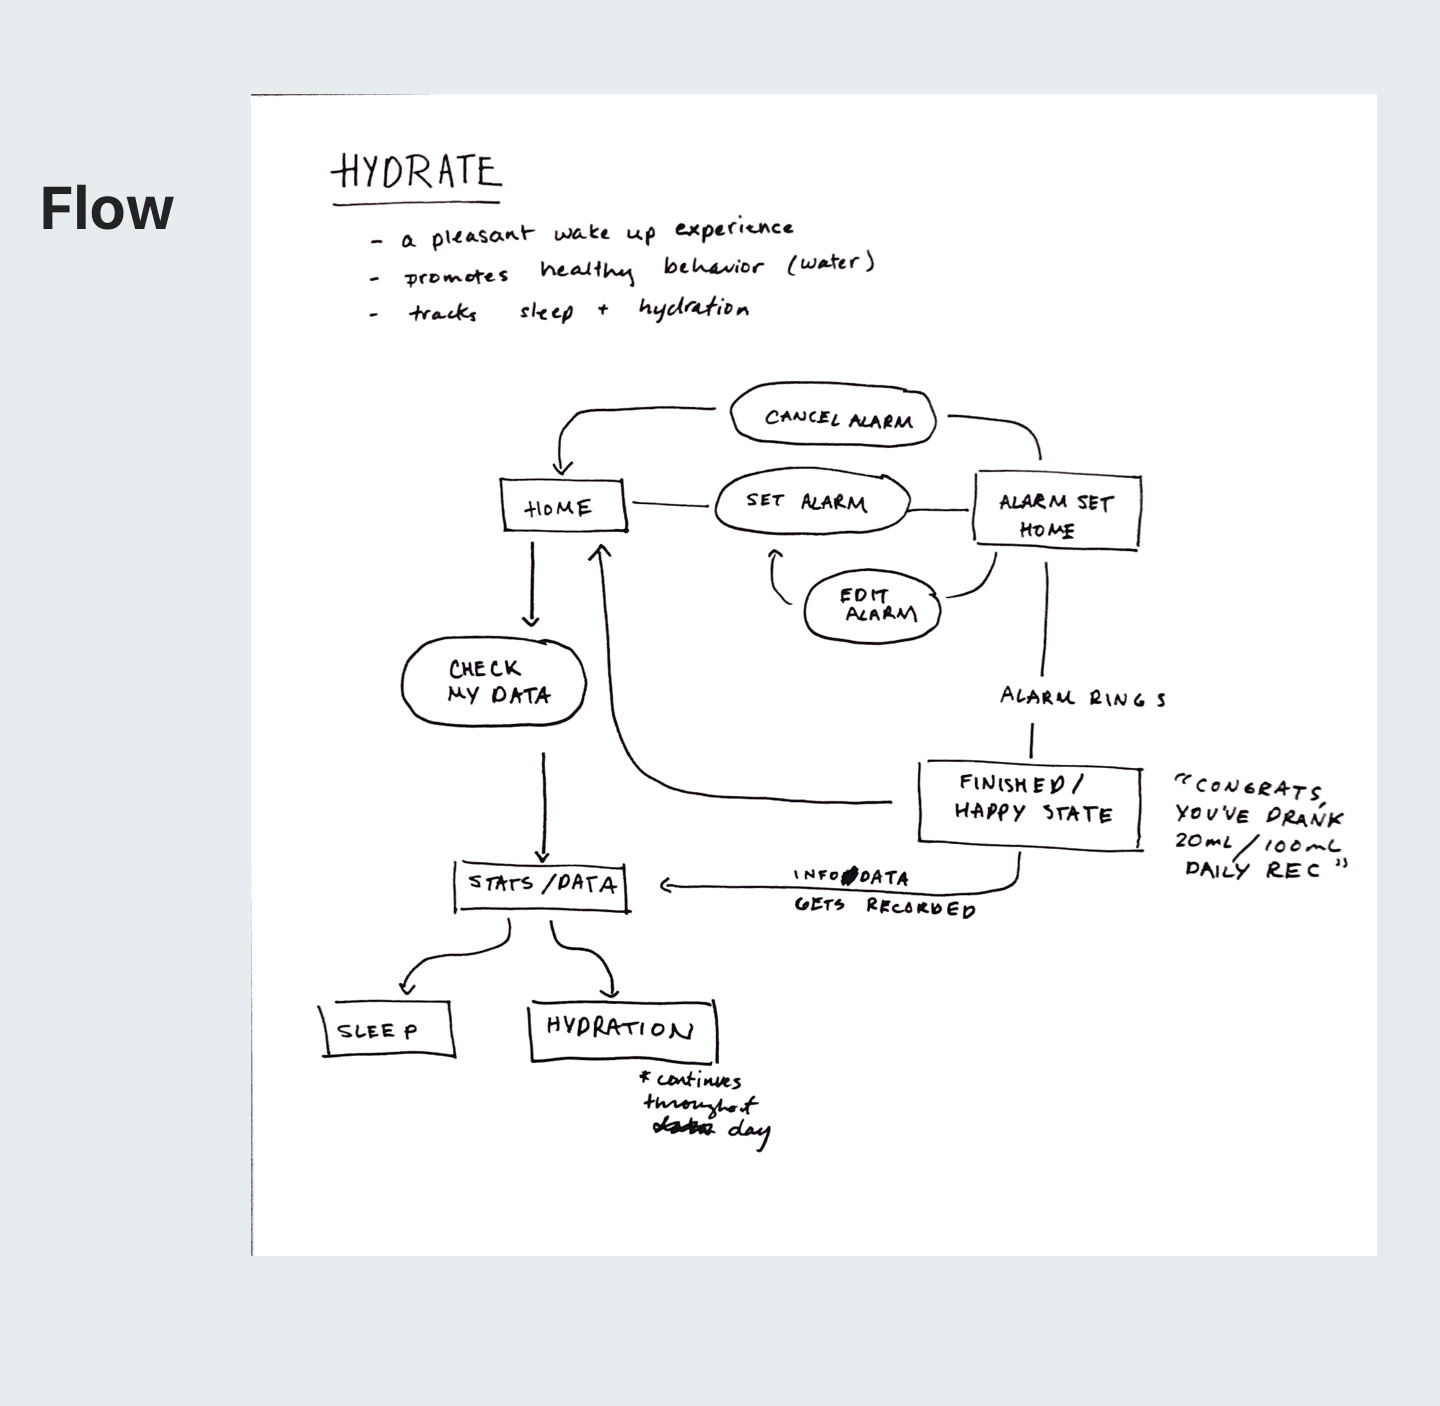 Flow
HYDRATE
- a pleasant wake up experience
- promotes healthy behavior (water)
- tracks sleep + hydration
CANCEL ALARM
HOME
SET ALARM
ALARM SET
HOME
EDIT
ALARM
CHECK
MY DATA
ALARM RINGS
FINISHED/
HAPPY STATE
"CONGRATS,
YOU'VE DRANK
20mL/100mL
DAILY REC"
STATS/DATA
INFO DATA
GETS RECORDED
SLEEP
HYDRATION
* continues
throughout
day